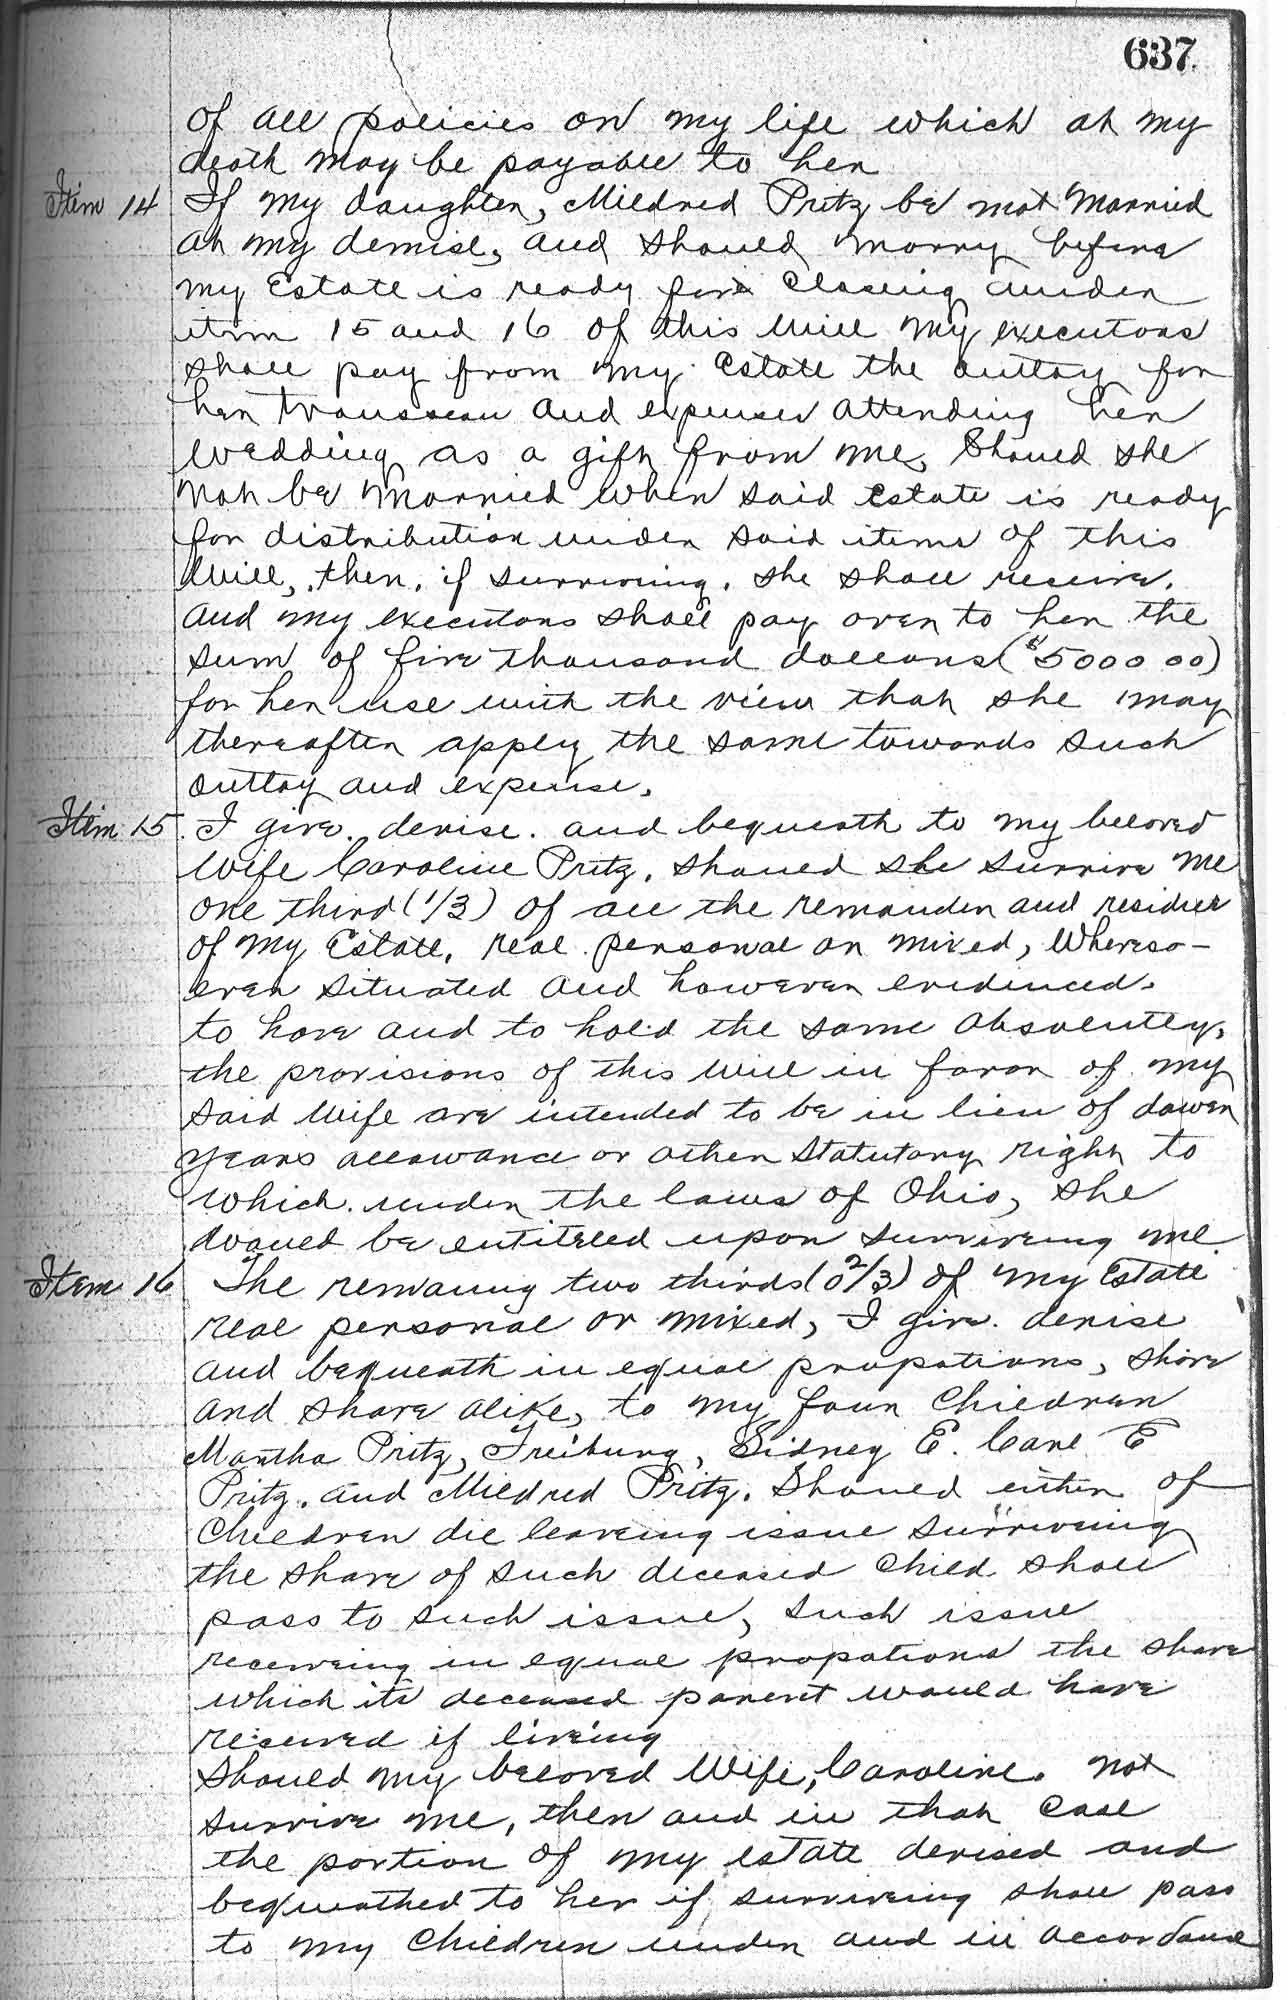 637
of all policies on my life which at my
death may be payable to her
Item 14 If my daughter, Mildred Pritz be not married
at my demise, and should marry before
my Estate is ready for closing under
item 15 and 16 of this will my executors
shall pay from my Estate the outlay for
her trousseau and expenses attending her
wedding as a gift from me, Should she
not be married when said estate is ready
for distribution under said items of this
will, then, if surviving, she shall receive,
and my executors shall pay over to her the
sum of five thousand dollars ($5000 00)
for her use with the view that she may
thereafter apply the same towards such
outlay and expense,
Item 15 I give, devise, and bequeath to my beloved
wife Caroline Pritz, should she survive me
one third (1/3) of all the remainder and residue
of my Estate, real personal or mixed, whereso-
ever situated and however evidenced,
to have and to hold the same absolutely,
the provisions of this will in favor of my
said wife are intended to be in lieu of dower
years allowance or other statutory right to
which under the laws of Ohio, she
would be entitled upon surviving me.
Item 16 The remaining two thirds (2/3) of my Estate
real personal or mixed, I give devise
and bequeath in equal propotions, share
and share alike, to my four children
Martha Pritz, Freiburg, Sidney E. Carl E
Pritz, and Mildred Pritz. Should either of
children die leaving issue surviving
the share of such deceased child shall
pass to such issue, such issue
receiving in equal propotions the share
which its deceased parent would have
received if living
Should my beloved wife, Caroline, not
survive me, then and in that case
the portion of my estate devised and
bequeathed to her if surviving shall pass
to my children under and in accordance